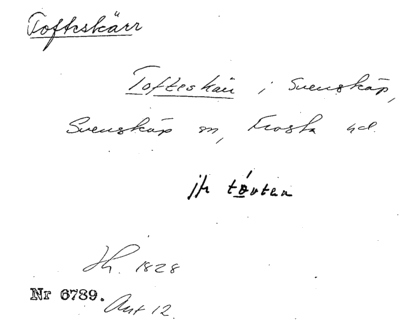 Tofteskärr
Tofteskärr i Svensköp,
Svensköp sn, Frosta hd.
jfr tåvten
Jh. 1828
Nr 6789. Ant 12.